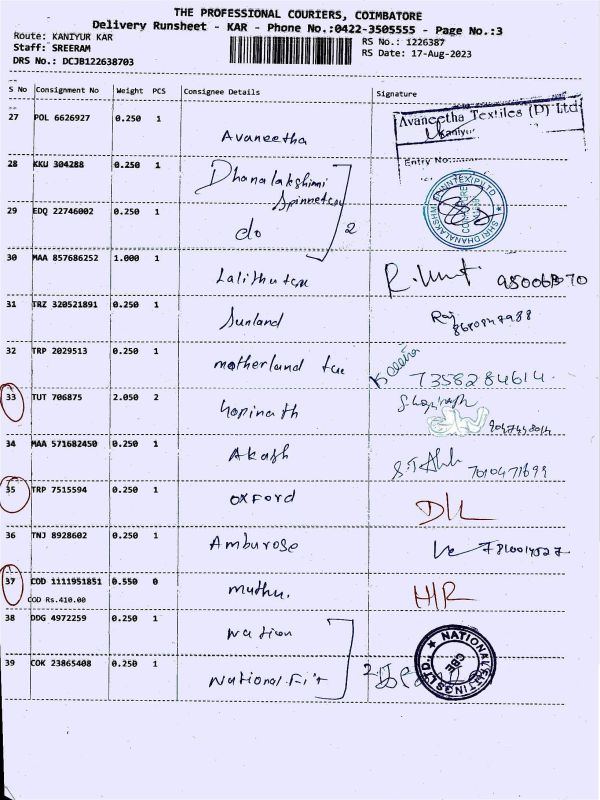 THE PROFESSIONAL COURIERS, COIMBATORE
Delivery Runsheet - KAR - Phone No.:0422-3505555 - Page No.:3
Route: KANIYUR KAR RS No.: 1226387
Staff: SREERAM RS Date: 17-Aug-2023
DRS No.: DCJB122638703
S No Consignment No Weight PCS Consignee Details Signature
27 POL 6626927 0.250 1 Avaneetha
Avaneetha Textiles (P) Ltd
Kaniyur
Entry No:
28 KKU 304288 0.250 1 Dhanalakshmi
29 EDQ 22746002 0.250 1 do 2
SHRI DHANALAKSHMI
30 MAA 857686252 1.000 1
31 TRZ 320521891 0.250 1 Sunland Raj
32 TRP 2029513 0.250 1 motherland
7358284614
33 TUT 706875 2.050 2 Gopinath
34 MAA 571682450 0.250 1 Akash
7010471699
35 TRP 7515594 0.250 1 OXFORD D/L
36 TNJ 8928602 0.250 1 Amburose
37 COD 1111951851 0.550 0 muthu.
COD Rs.410.00
38 DDG 4972259 0.250 1 Nation
39 COK 23865408 0.250 1 National Fit 2
NATIONAL FITTINGS LTD.
CBE